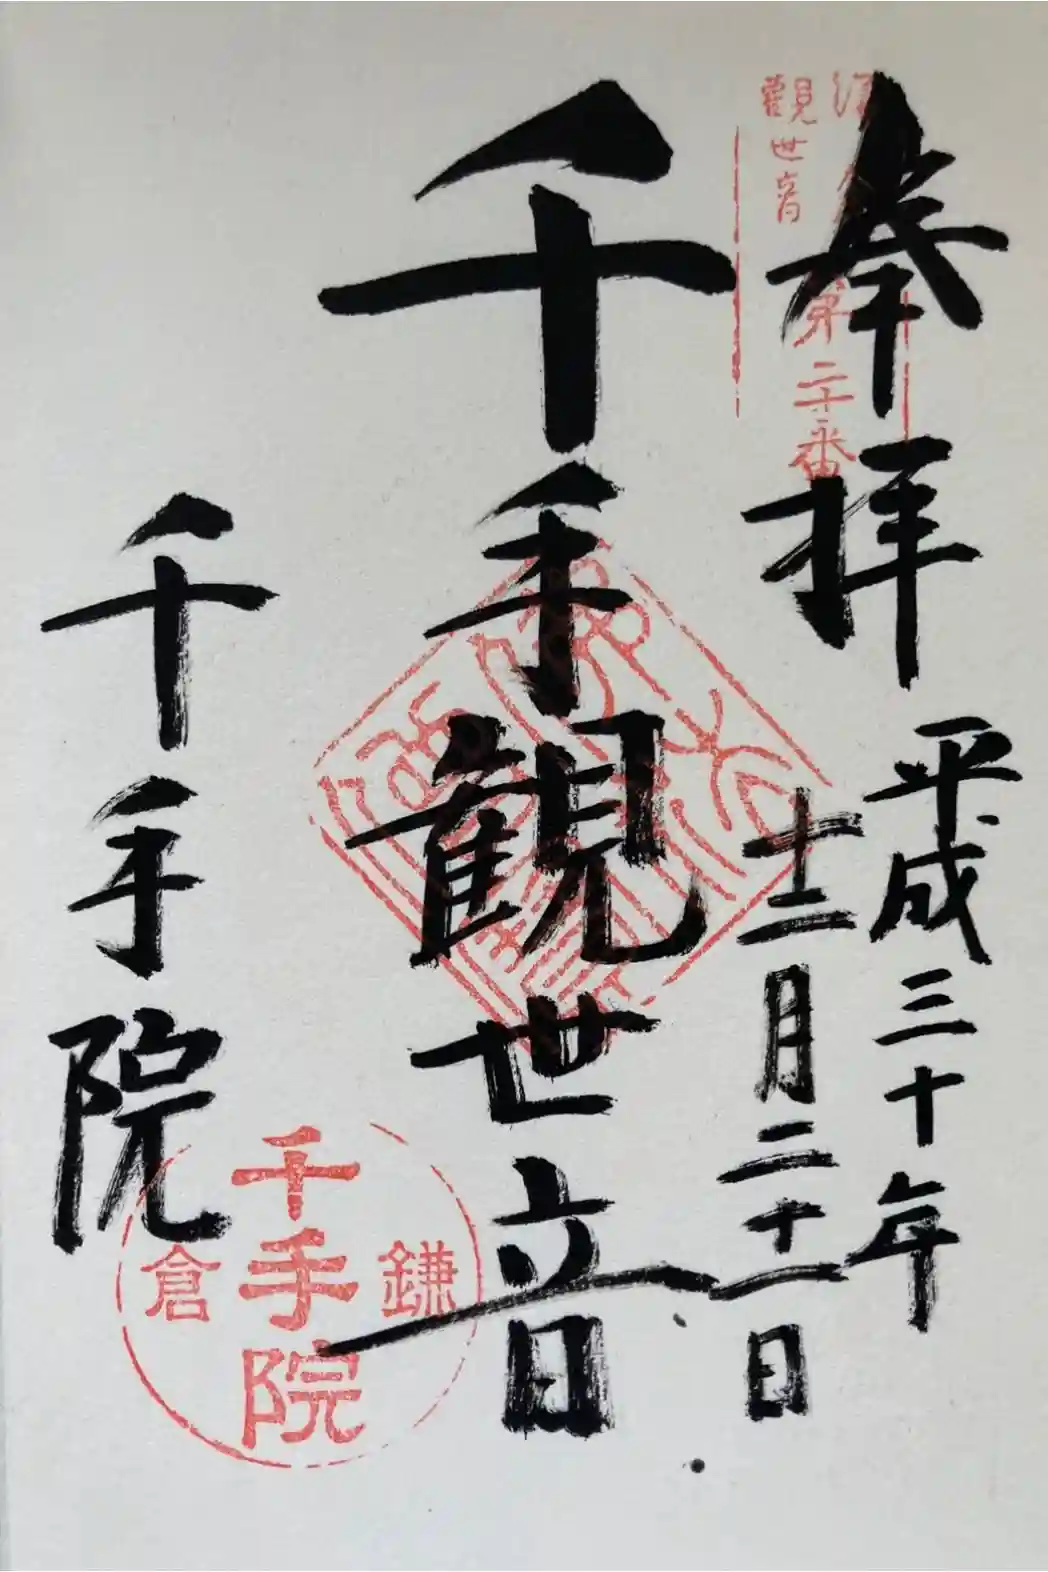 奉拝
平成三十年
十二月二十一日
観世音
第二十番
千手観世音
千手院
鎌倉
千手院